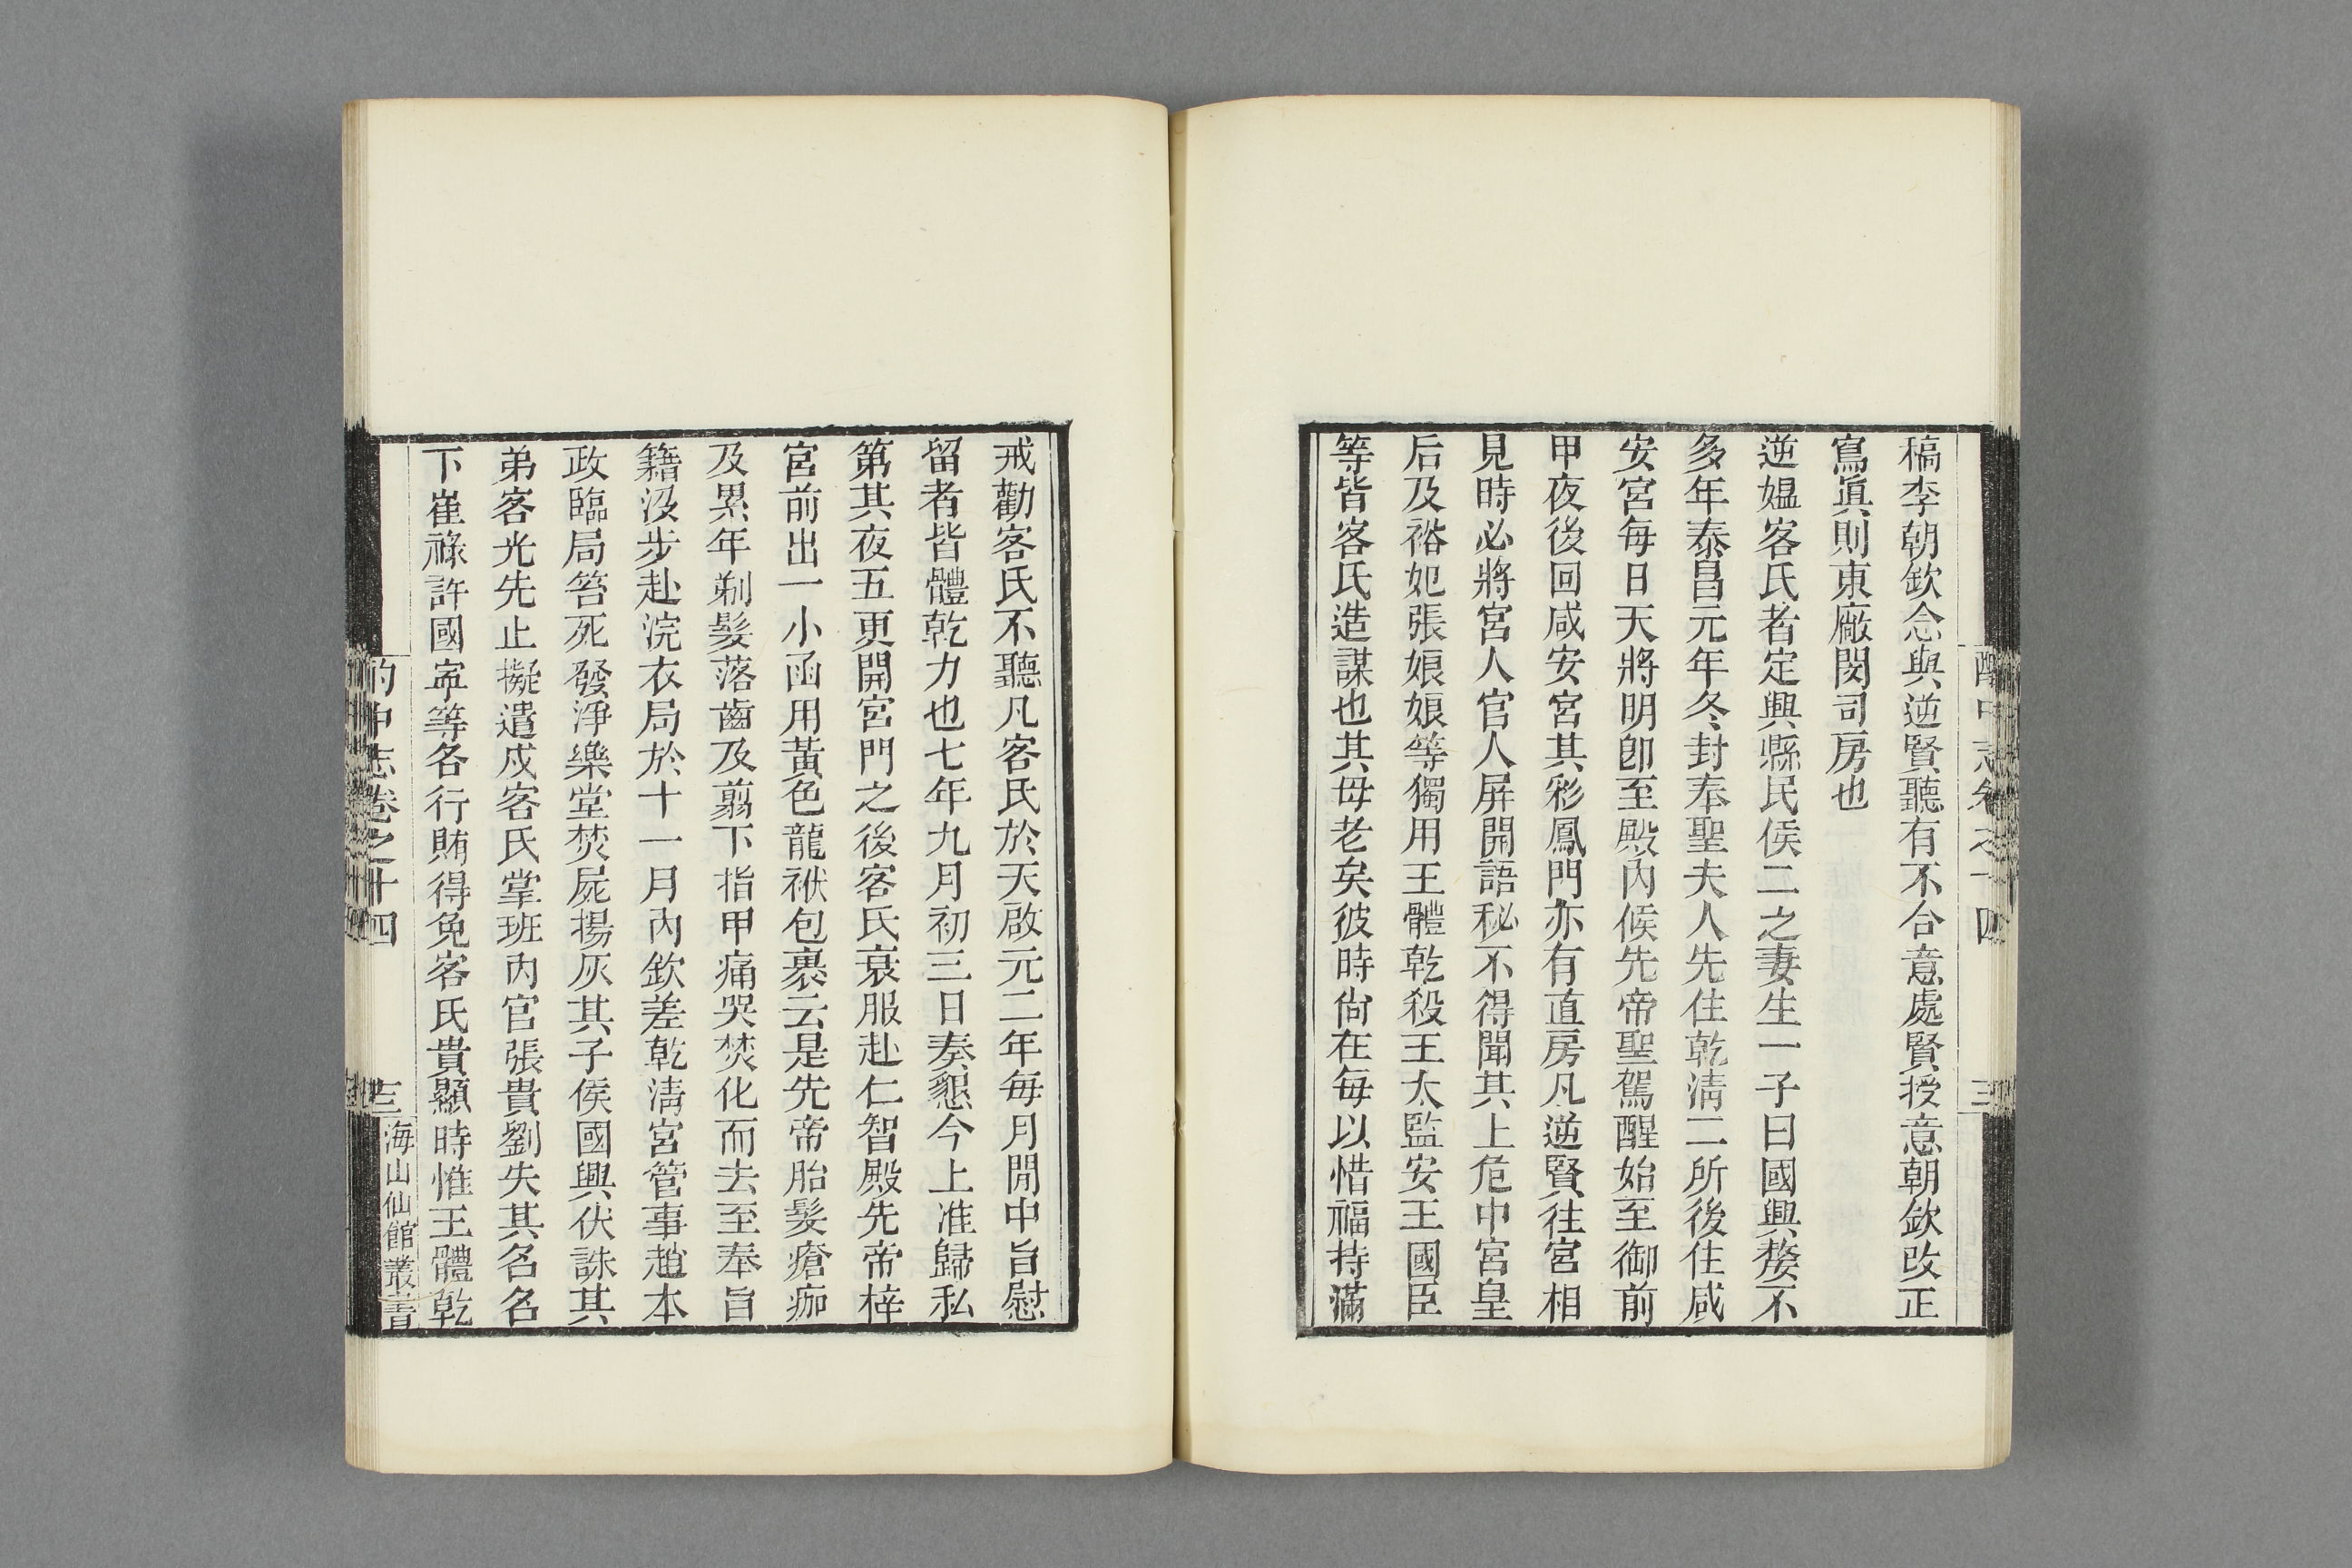 稿李朝欽念與逆賢聽有不合意處賢授意朝欽改正
寫眞則東廠閔司房也
逆媼客氏者定興縣民侯二之妻生一子曰國興嫠不
多年泰昌元年冬封奉聖夫人先住乾淸二所後住咸
安宮每日天將明卽至殿內候先帝聖駕醒始至御前
甲夜後回咸安宮其彩鳳門亦有直房凡逆賢往宮相
見時必將宮人官人屏開語秘不得聞其上危中宮皇
后及裕妃張娘娘等獨用王體乾殺王太監安王國臣
等皆客氏造謀也其母老矣彼時尙在每以惜福持滿
戒勸客氏不聽凡客氏於天啟元二年每月閒中旨慰
留者皆體乾力也七年九月初三日奏懇今上准歸私
第其夜五更開宮門之後客氏衰服赴仁智殿先帝梓
宮前出一小函用黃色龍袱包裹云是先帝胎髮瘡痂
及累年剃髮落齒及翦下指甲痛哭焚化而去至奉旨
籍沒步赴浣衣局於十一月內欽差乾淸宮管事趙本
政臨局笞死發淨樂堂焚屍揚灰其子侯國興伏誅其
弟客光先止擬遣戍客氏掌班內官張貴劉失其名名
下崔祿許國寧等各行賄得免客氏貴顯時惟王體乾
酌中志卷之十四
三
海山仙館叢書